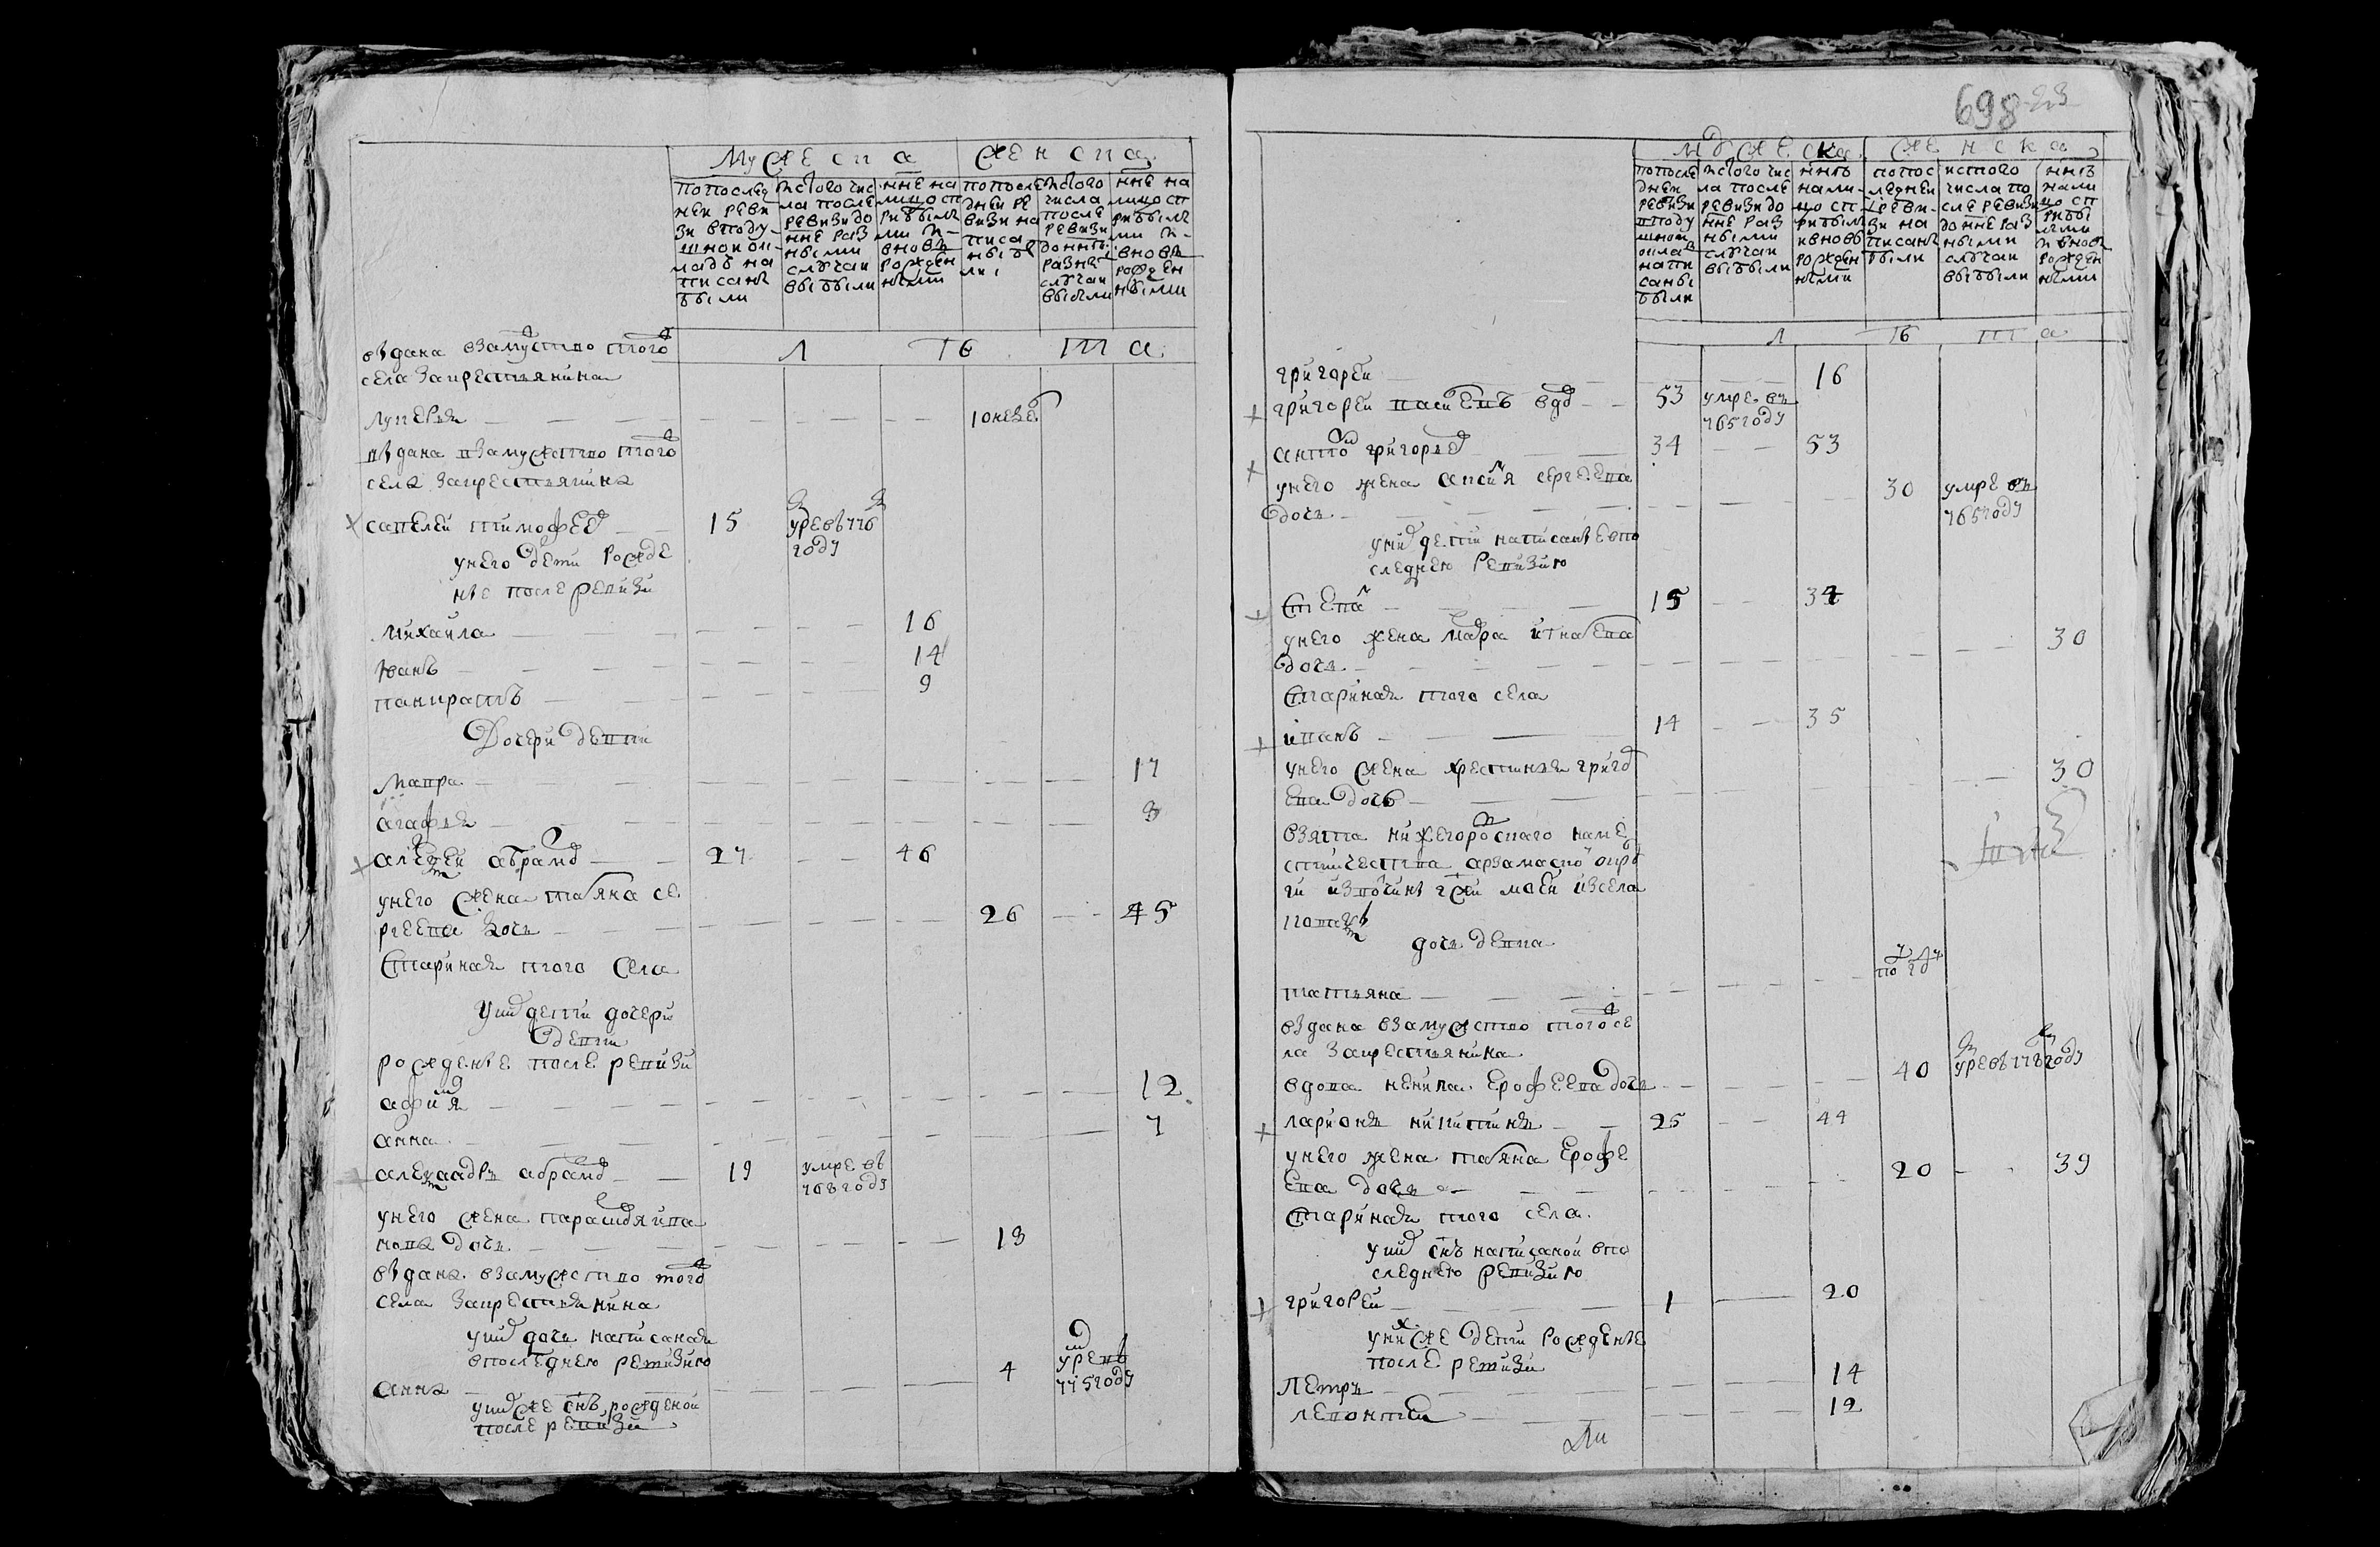 Мужеска
женска
попослед
ней реви
зи вподу
шной ок
ладъ на
писанъ
были
истого чис
ла после
ревизи до
нне раз
ными
случаи
выбыли
нне на
лицо сп
рибылы
ми и
вновь
рожден
ными
попосле
дней ре
визи на
писа
ныбы
ли
истого
числа
после
ревизи
донне
разны
случаи
выбыли
нне на
лицо сп
рибылы
ми и
вновь
рожден
ными
лѣта
выдана взамуство тогож
села закрестьянина
лукерья 10 недел
выдана взамужство тогож
села закрестьянина
савелей тимофеев 15 умре в776
году
унего дети рожде
ные после ревизи
михаила 16
иванъ 14
панкратъ 9
Дочери девки
мавра 17
агафья 8
алексей абрамов 27 46
унего жена татяна се
ргеева дочь 26 45
Стариная того села
уних дети дочери
девки
рожденые после ревизи
афимя 12
анна 7
александръ абрамов 19 умре в
768 году
унего жена парасковя ива
нова дочь 18
выдана взамужство тогож
села закрестьянина
уних дочь написаная
впоследнею ревизию
анна 4 умре в
775 году
уних же снъ рожденой
после ревизи
698 23
мужеска
женска
попосле
дней
ревизи
вподу
шной
оклад
напи
саны
были
истого чис
ла после
ревизи до
нне раз
ными
случаи
выбыли
ннѣ
нали
цо сп
рибылы
ивновь
рожден
ными
попос
ледней
реви
зи на
писанъ
были
истого
числа по
сле ревизи
донне раз
ными
случаи
выбыли
ннѣ
нали
цо сп
рибы
лыми
ивновь
рожден
ными
лѣта
григорей 16
григорей васильевъ вдов 53 умре въ
765 году
антон григорьев 34 53
унего жена аксиня сергеева
дочь 30 умре въ
765 году
уних дети написаные впо
следнею ревизию
степан 15 34
унего жена мавра игнатева
дочь 30
Стариная того села
иванъ 14 35
унего жена крестинья григор
ева дочь 30
взята нижегороского наме
стничества арзамаской окру
ги
дочь девка
татьяна
выдана взамужство тогож се
ла закрестьянина
вдова ненила ерофеева дочь 40 умре в778 году
ларионъ никитинъ 25 44
унего жена татяна ерофе
ева дочь 20 39
стариная того села
уних снъ написаной впо
следнею ревизию
григорей 1 20
уних же дети рожденые
после ревизи
петръ 14
леонтей 12